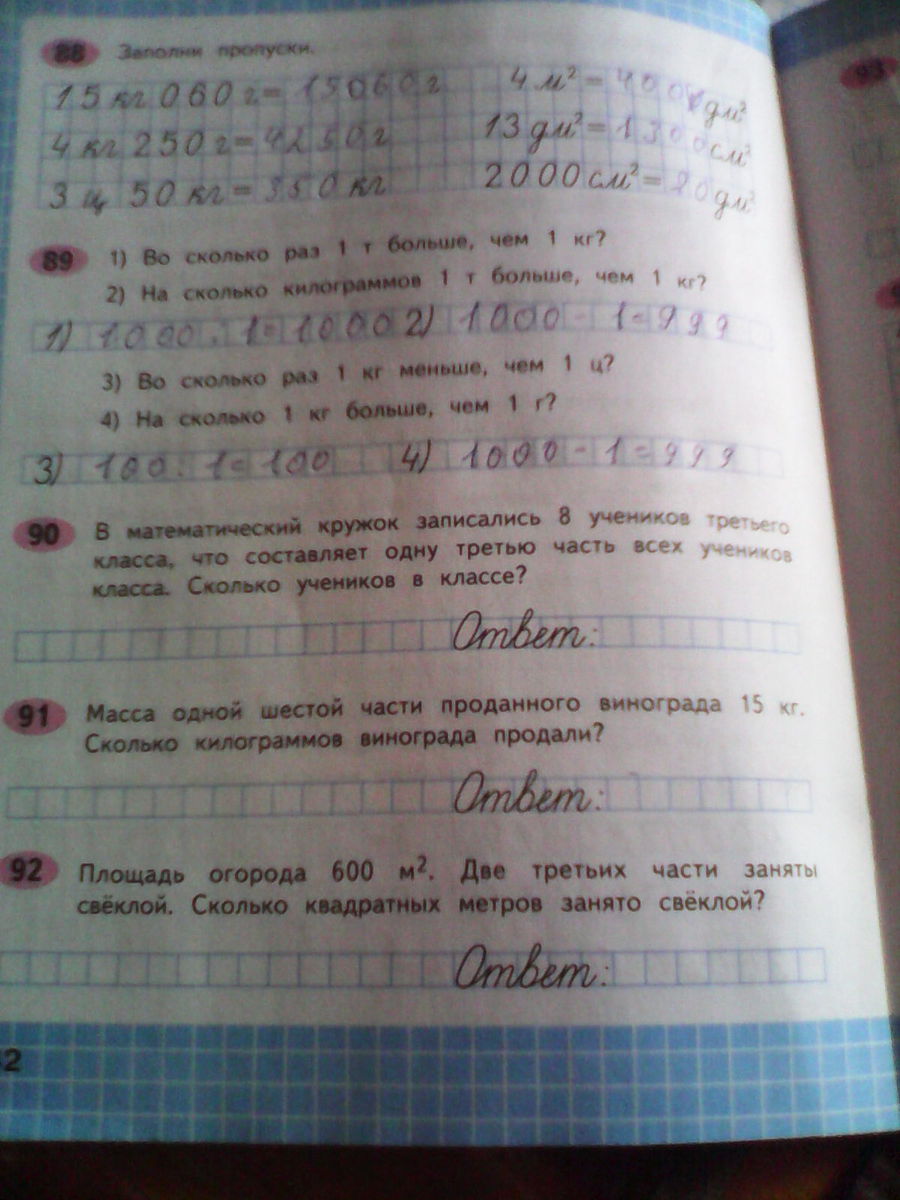 88 Заполни пропуски.
15 кг 060 г = 15060 г 4 м² = 400 дм²
4 кг 250 г = 4250 г 13 дм² = 1300 см²
3 ц 50 кг = 350 кг 2000 см² = 20 дм²
89 1) Во сколько раз 1 т больше, чем 1 кг?
2) На сколько килограммов 1 т больше, чем 1 кг?
1) 1000 : 1 = 1000 2) 1000 - 1 = 999
3) Во сколько раз 1 кг меньше, чем 1 ц?
4) На сколько 1 кг больше, чем 1 г?
3) 100 : 1 = 100 4) 1000 - 1 = 999
90 В математический кружок записались 8 учеников третьего
класса, что составляет одну третью часть всех учеников
класса. Сколько учеников в классе?
Ответ:
91 Масса одной шестой части проданного винограда 15 кг.
Сколько килограммов винограда продали?
Ответ:
92 Площадь огорода 600 м². Две третьих части заняты
свёклой. Сколько квадратных метров занято свёклой?
Ответ: